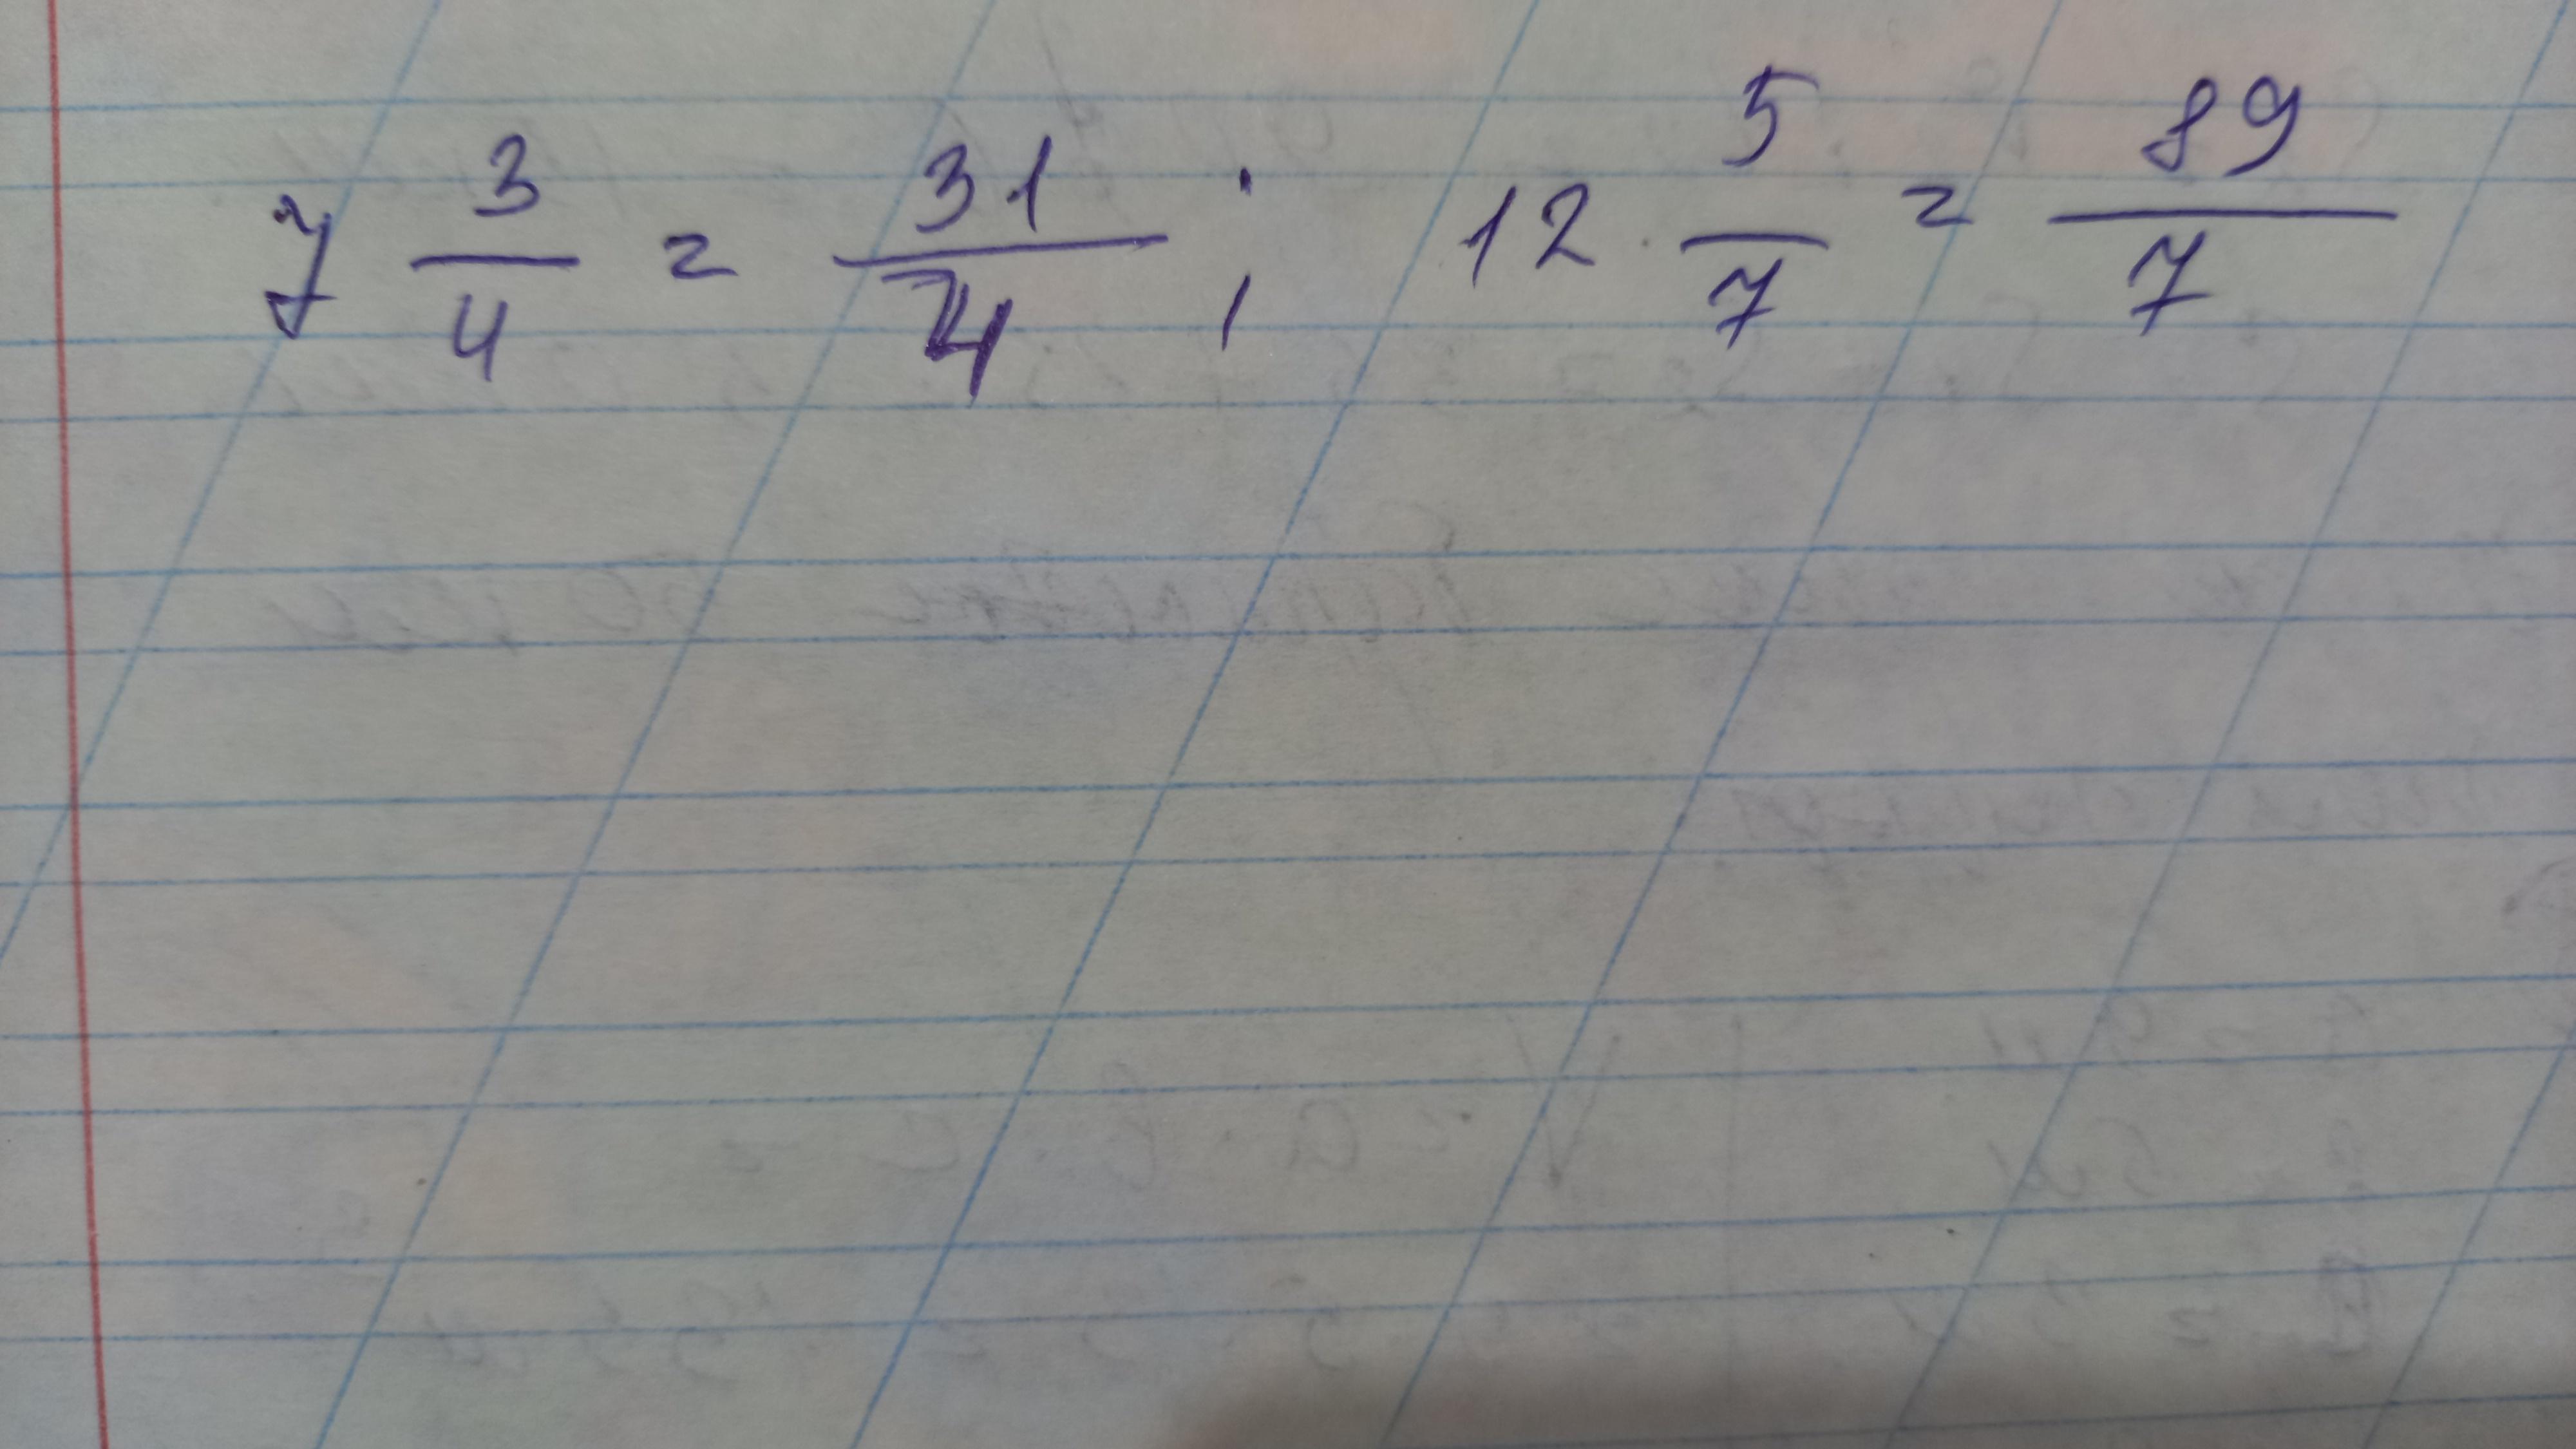 7 3/4 = 31/4 ; 12 5/7 = 89/7